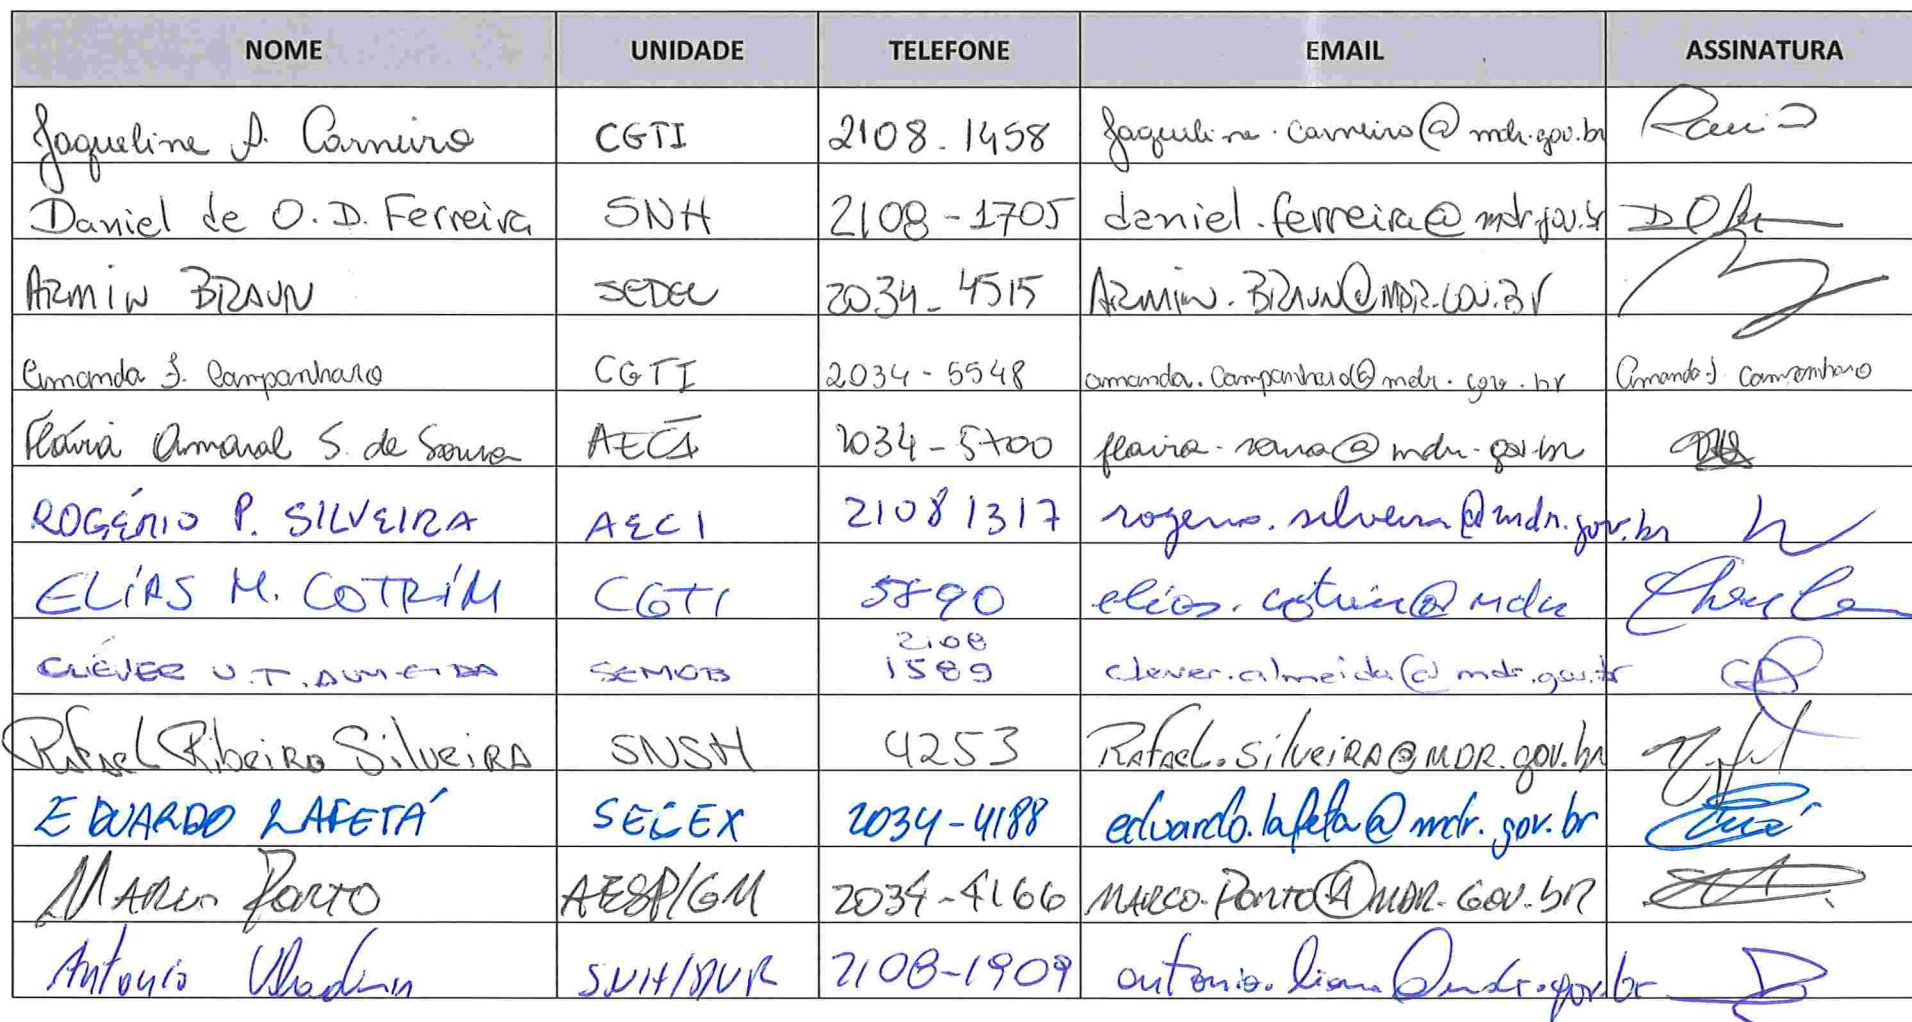 NOME UNIDADE TELEFONE EMAIL ASSINATURA
Jaqueline A. Carneiro CGTI 2108.1458 jaqueline.carneiro@mdr.gov.br
Daniel de O. D. Ferreira SNH 2108-1705 daniel.ferreira@mdr.gov.br
ARMIN BRAUN SEDEC 2034-4515 ARMIN.BRAUN@MDR.GOV.BR
Amanda J. Campanharo CGTI 2034-5548 amanda.campanharo@mdr.gov.br Amanda J. Campanharo
Flávia Amaral S. de Sousa AECI 2034-5700 flavia.sousa@mdr.gov.br
ROGÉRIO P. SILVEIRA AECI 21081317 rogerio.silveira@mdr.gov.br
ELÍAS M. COTRÍM CGTI 5890 elias.cotrim@mdr
2108
CLÉVER U.T. ALMEIDA SEMOB 1589 clever.almeida@mdr.gov.br
Rafael Ribeiro Silveira SNSH 4253 Rafael.Silveira@MDR.gov.br
EDUARDO LAFETÁ SECEX 2034-4188 eduardo.lafeta@mdr.gov.br
MARCO PORTO AESP/GM 2034-4166 MARCO.PORTO@MDR.GOV.br
Antonio SNH 2108-1909